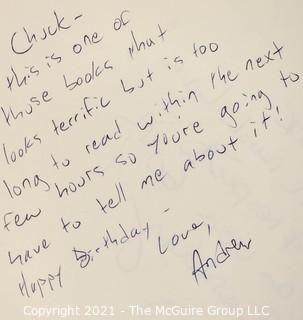 Chuck-
this is one of
those books that
looks terrific but is too
long to read within the next
few hours so you're going to
have to tell me about it!
Happy Birthday -
Love,
Andrew
Copyright 2021 - The McGuire Group LLC